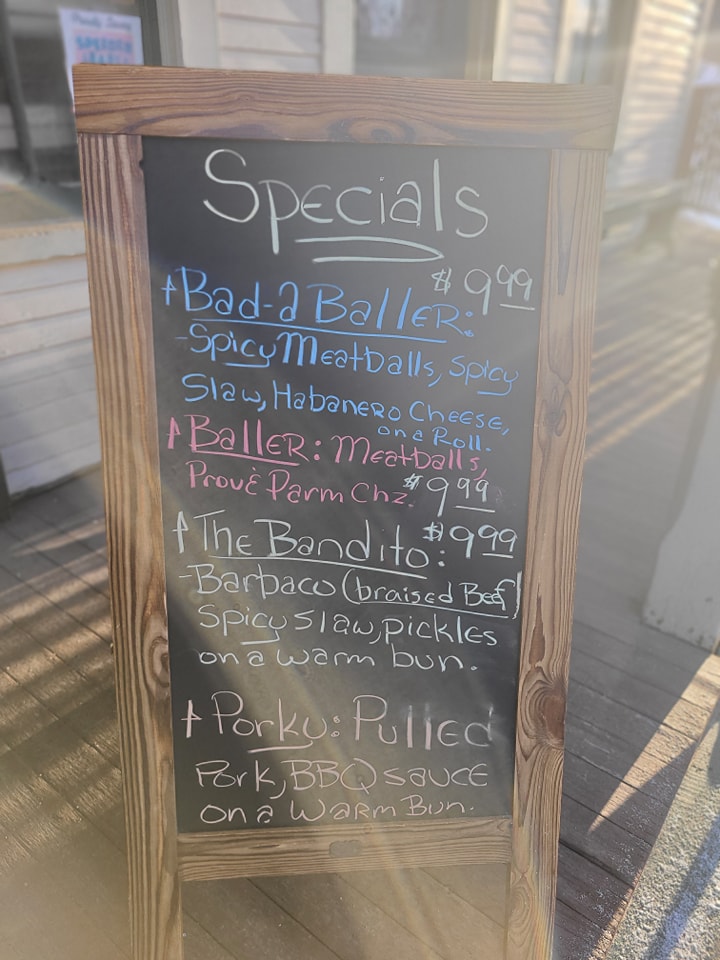 Proudly Serving
Specials
$9.99
Bad-a Baller:
-Spicy Meatballs, Spicy
Slaw, Habanero Cheese,
on a Roll.
Baller: Meatballs,
Prov & Parm Chz. $9.99
The Bandito: $9.99
-Barbaco (braised Beef)
Spicy slaw, pickles
on a warm bun.
Porky: Pulled
Pork, BBQ sauce
on a Warm Bun.